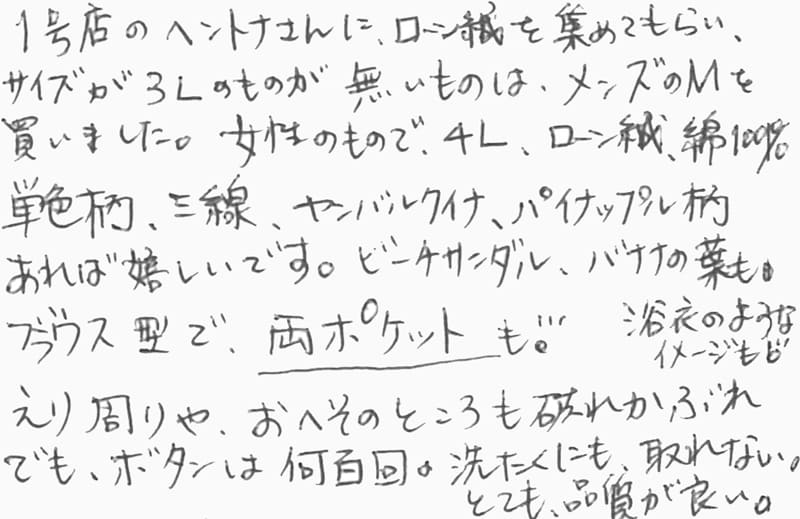 1号店のヘントナさんに、ローン織を集めてもらい、
サイズが3Lのものが無いものは、メンズのMを
買いました。女性のもので、4L、ローン織、綿100%
単色柄、三線、ヤンバルクイナ、パイナップル柄
あれば嬉しいです。ビーチサンダル、バナナの葉も。
ブラウス型で、両ポケットも。
浴衣のような
イメージもど
えり周りや、おへそのところも破れかぶれ
でも、ボタンは何百回の洗たくにも、取れない。
とても、品質が良い。